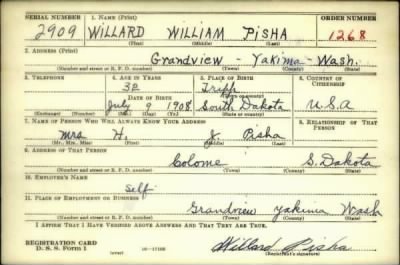 SERIAL NUMBER 1. NAME (Print) ORDER NUMBER
2909 WILLARD WILLIAM PISHA 1268
(First) (Middle) (Last)
2. ADDRESS (Print)
Grandview - Yakima - Wash.
(Number and street or R. F. D. number) (Town) (County) (State)
3. TELEPHONE 4. AGE IN YEARS 5. PLACE OF BIRTH 6. COUNTRY OF CITIZENSHIP
32 Tripp
DATE OF BIRTH (Town or county)
July 9 1908 South Dakota U.S.A
(Exchange) (Number) (Mo.) (Day) (Yr.) (State or country)
7. NAME OF PERSON WHO WILL ALWAYS KNOW YOUR ADDRESS 8. RELATIONSHIP OF THAT PERSON
Mrs H. J. Pisha
(Mr., Mrs., Miss) (First) (Middle) (Last)
9. ADDRESS OF THAT PERSON
Colome S. Dakota
(Number and street or R. F. D. number) (Town) (County) (State)
10. EMPLOYER'S NAME
Self
11. PLACE OF EMPLOYMENT OR BUSINESS
Grandview Yakima Wash
(Number and street or R. F. D. number) (Town) (County) (State)
I AFFIRM THAT I HAVE VERIFIED ABOVE ANSWERS AND THAT THEY ARE TRUE.
REGISTRATION CARD
D. S. S. Form 1 (over) 16-17105 Willard Pisha
(Registrant's signature)